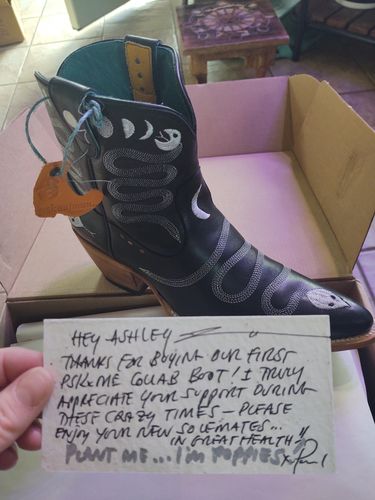 HEY ASHLEY
THANKS FOR BUYING OUR FIRST
PSKAME COLLAB BOOT! I TRULY
APPRECIATE YOUR SUPPORT DURING
THESE CRAZY TIMES – PLEASE
ENJOY YOUR NEW SOLEMATES...
IN GREAT HEALTH!!
PLANT ME... I'M POPPIES